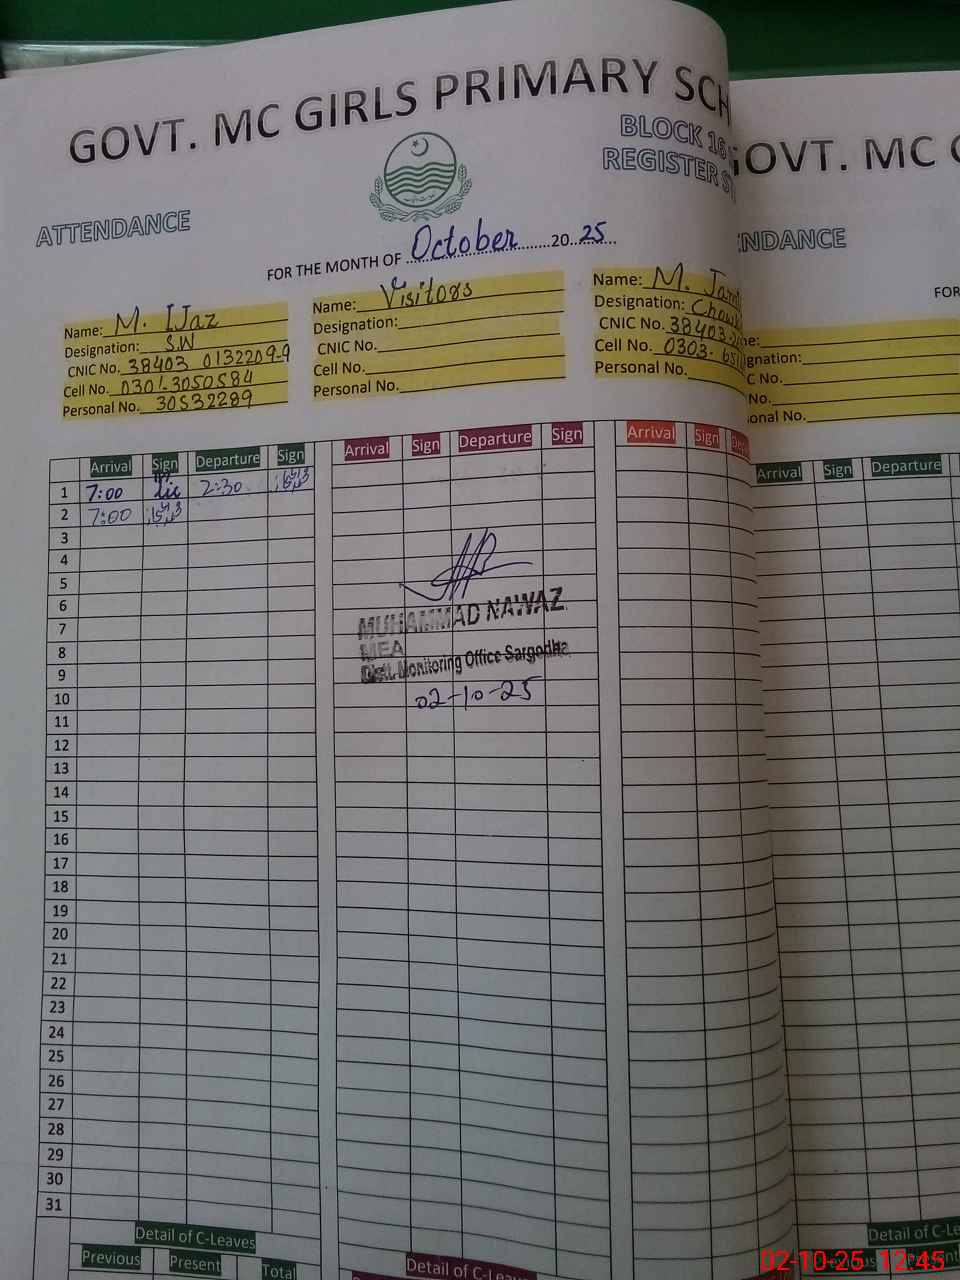 GOVT. MC GIRLS PRIMARY SCH
BLOCK 16
REGISTER
ATTENDANCE
FOR THE MONTH OF October 20 25
Name: M. IJaz
Designation: S.W
CNIC No. 38403 0132209-9
Cell No. 0301-3050584
Personal No. 30532289
Name: Visitors
Designation:
CNIC No.
Cell No.
Personal No.
Name: M. Jam
Designation: Chowk
CNIC No. 38403-
Cell No. 0303-
Personal No.
Arrival Sign Departure Sign
Arrival Sign Departure Sign
Arrival Sign
1 7:00 2:30
2 7:00
3
4
5
6
7
8
9
10
11
12
13
14
15
16
17
18
19
20
21
22
23
24
25
26
27
28
29
30
31
MUHAMMAD NAWAZ
MEA
Distt. Monitoring Office Sargodha
02-10-25
Detail of C-Leaves
Previous Present Total
Detail of C-Leaves
GOVT. MC G
NDANCE
FOR
me:
gnation:
C No.
No.
onal No.
Arrival Sign Departure
Detail of C-Le
02-10-25 12:45